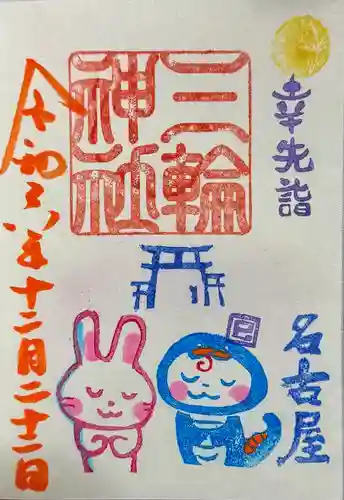 幸先詣
三輪
神社
巳
名古屋
令和六年十二月二十二日